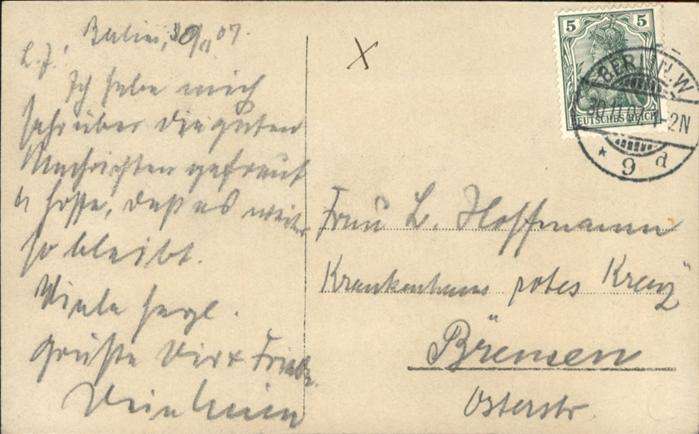 Berlin, 30/11 07.
L. J.!
Ich habe mich
sehr über die guten
Nachrichten gefreut
u hoffe, daß es weiter
so bleibt.
Viele herzl.
Grüße Dir &
Dein
Frau L. Hoffmann
Krankenhaus rotes Kreuz
Bremen
Osterstr.
5 5
DEUTSCHES REICH
BERLIN.W
30.11.07. 1-2N
* 9 d